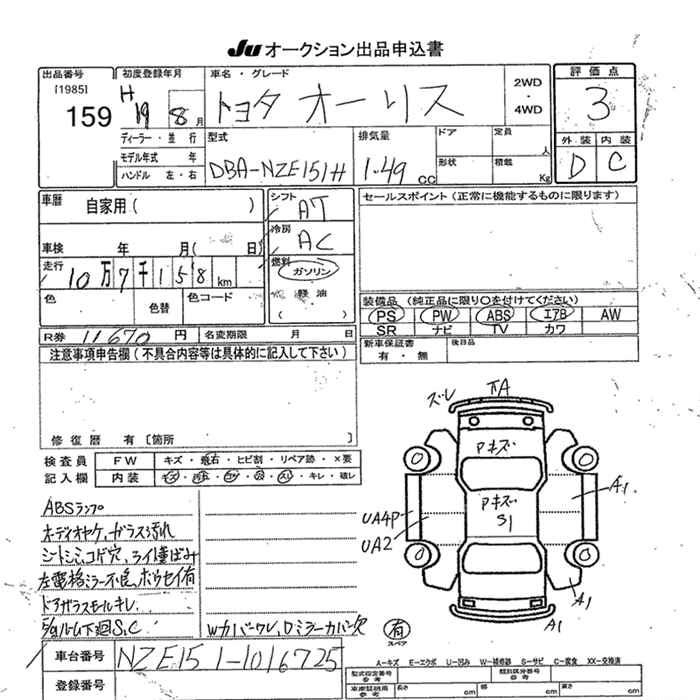 Ju オークション出品申込書
出品番号
[1985]
159
初度登録年月
H 19 8 月
車名・グレード
トヨタ オーリス
2WD
・
4WD
評価点
3
ディーラー・並 行
モデル年式 年
ハンドル 左・右
型式
DBA-NZE151H
排気量
1.49 CC
ドア
定員
人
形状
積載
Kg
外装 内装
D C
車歴
自家用( )
シフト
AT
セールスポイント(正常に機能するものに限ります)
車検 年 月( 日)
冷房
AC
走行
10万7千158km
燃料
ガソリン
軽油
( )
色
色替
色コード
装備品(純正品に限り○を付けてください)
PS PW ABS エアB AW
SR ナビ TV カワ
R券 11670 円
名変期限 月 日
新車保証書
有・無
後日品
注意事項申告欄(不具合内容等は具体的に記入して下さい)
修復歴 有〔箇所 〕
検査員
記入欄
FW キズ・飛石・ヒビ割・リペア跡・×要
内装
キレ・破レ
ズレ
アキズ
アキズ
S1
A1
UA4P
UA2
A1
A1
ABSランプ
シートシミ、コゲ穴、
ドアガラスモールキレ
下廻S,C
Wカバーワレ、Dミラーカバー欠
有
スペア
車台番号
NZE151-1016725
登録番号
A-キズ E-エクボ U-凹み W-補修跡 S-サビ C-腐食 XX-交換済
型式指定番号
参考
類別区分番号
参考
長さ cm 幅 cm 高さ cm